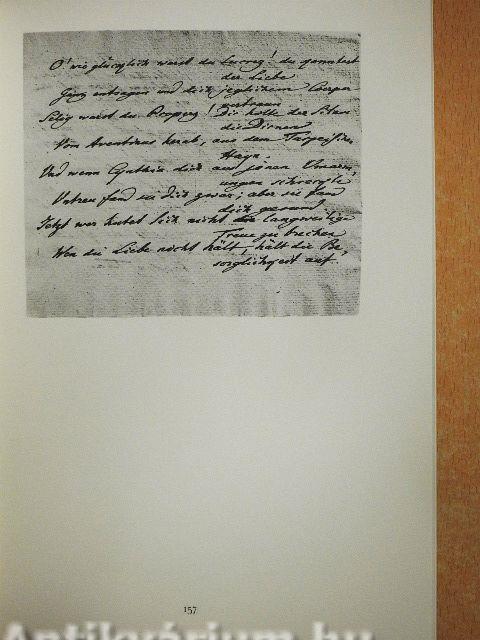 O! wie glücklich warst du Lucrez! du konntest
der Liebe
Ganz entsagen und dich jeglichem Coerper
vertrauen
Selig warst du Properz! Dir holte der Sklav
die Dirnen
Vom Aventinus herab, aus dem Tarpeischen
Hayn.
Und wenn Cynthia dich aus jenen Umarm,
ungen schreckte
Untreu fand sie dich zwar; aber sie fand
dich gesund
Jetzt wer hütet sich nicht die langweilige
Treue zu brechen
Wen die Liebe nicht hält, hält die Be,
sorglichkeit auf.
157
Antikvárium.hu